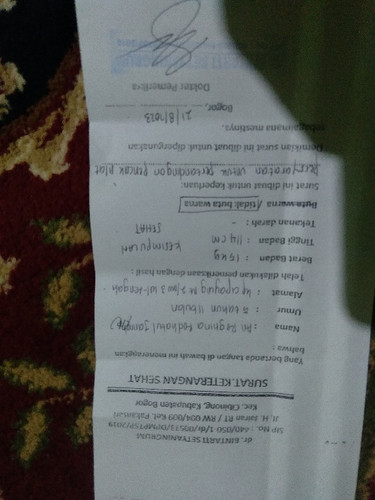 dr. BINTARTI SETYANINGRUM
SIP No. : 440/050-1/dr/00533/DPMPTSP/2019
Jl. H. Jairan RT / RW 004/009 Kel. Pakansari
Kec. Cibinong, Kabupaten Bogor
SURAT KETERANGAN SEHAT
Yang bertanda tangan di bawah ini menerangkan
bahwa :
Nama : An Regina
Umur : 5 tahun 11 bulan
Alamat : kp cipayung
Telah dilakukan pemeriksaan dengan hasil :
Berat Badan : 15 kg
Tinggi Badan : 114 cm KESIMPULAN
Tekanan darah : - SEHAT
Buta warna / tidak buta warna
Surat ini dibuat untuk keperluan:
persyaratan untuk pertandingan pencak silat
Demikian surat ini dibuat untuk dipergunakan
sebagaimana mestinya.
Bogor, 21/8/2023
Dokter Pemeriksa